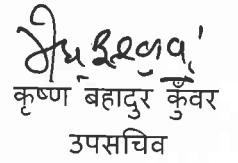 कृष्ण बहादुर कुँवर
उपसचिव